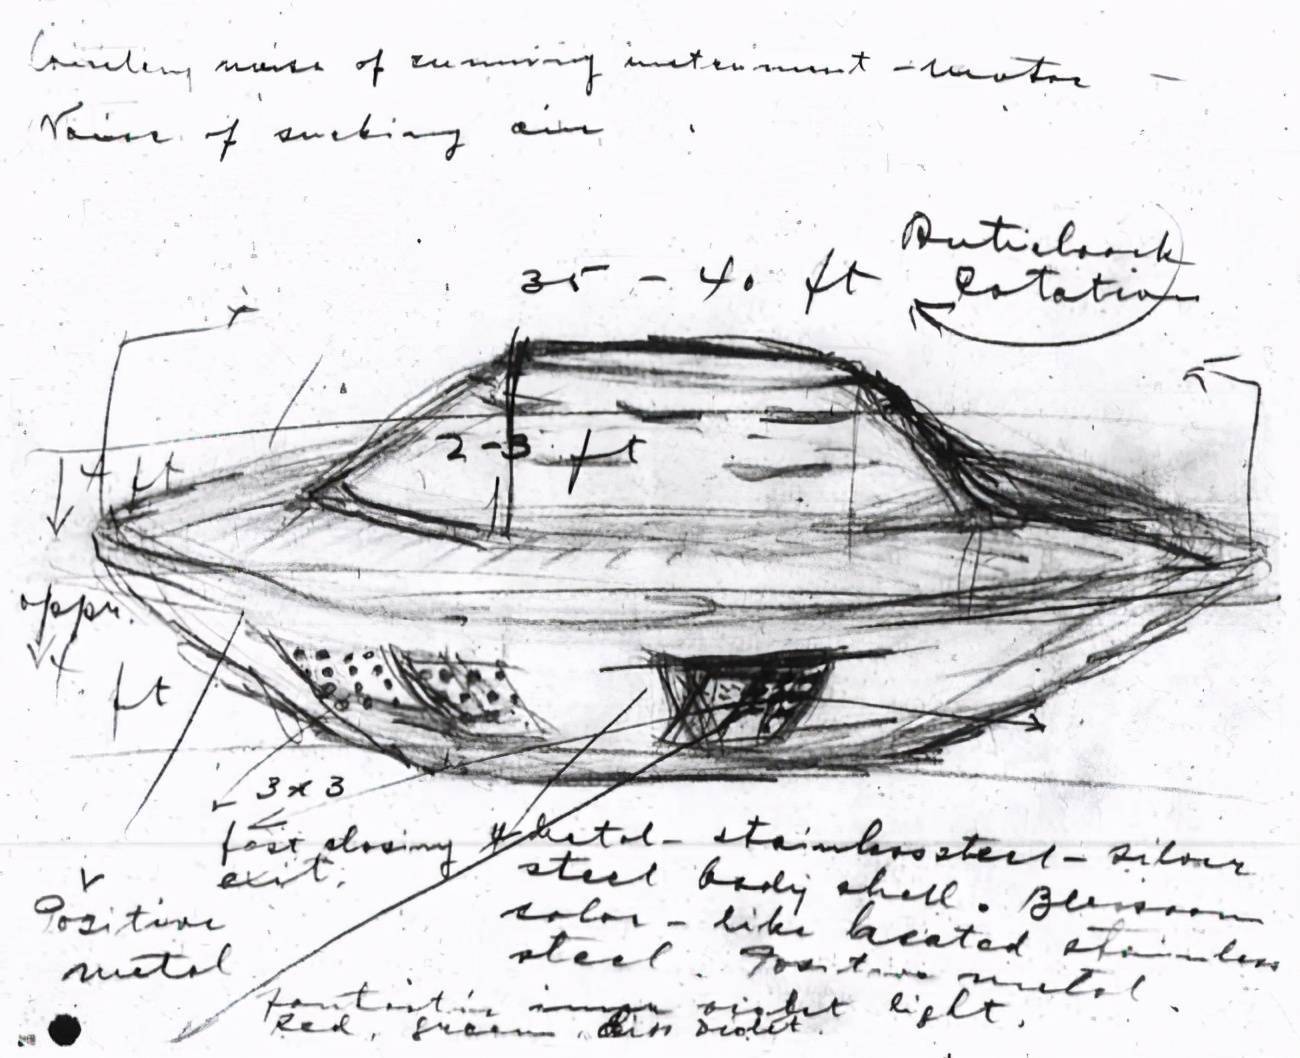 noise of running instrument - motor -
Noise of sucking air
Anticlock
35 - 40 ft Rotation
2-3 ft
4 ft
appr.
4
ft
3x3
fast closing
exit.
metal - stainlessteel - silver
steel body shell.
color - like heated stainless
steel. Positive metal.
Positive
metal
inner violet light.
Red, green, violet.